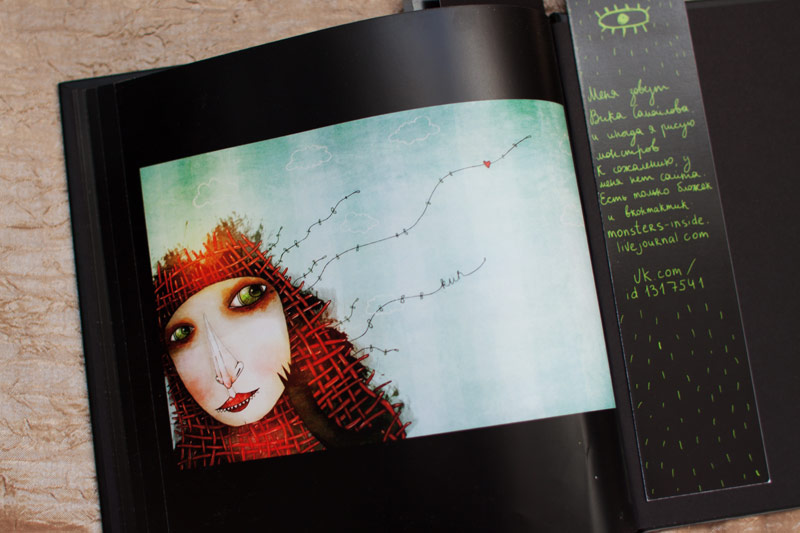 Меня зовут
Вика Самойлова
и иногда я рисую
монстров
К сожалению, у
меня нет сайта.
Есть только бложек
и вконтактик
monsters-inside.
livejournal.com
VK.com/
id1317541